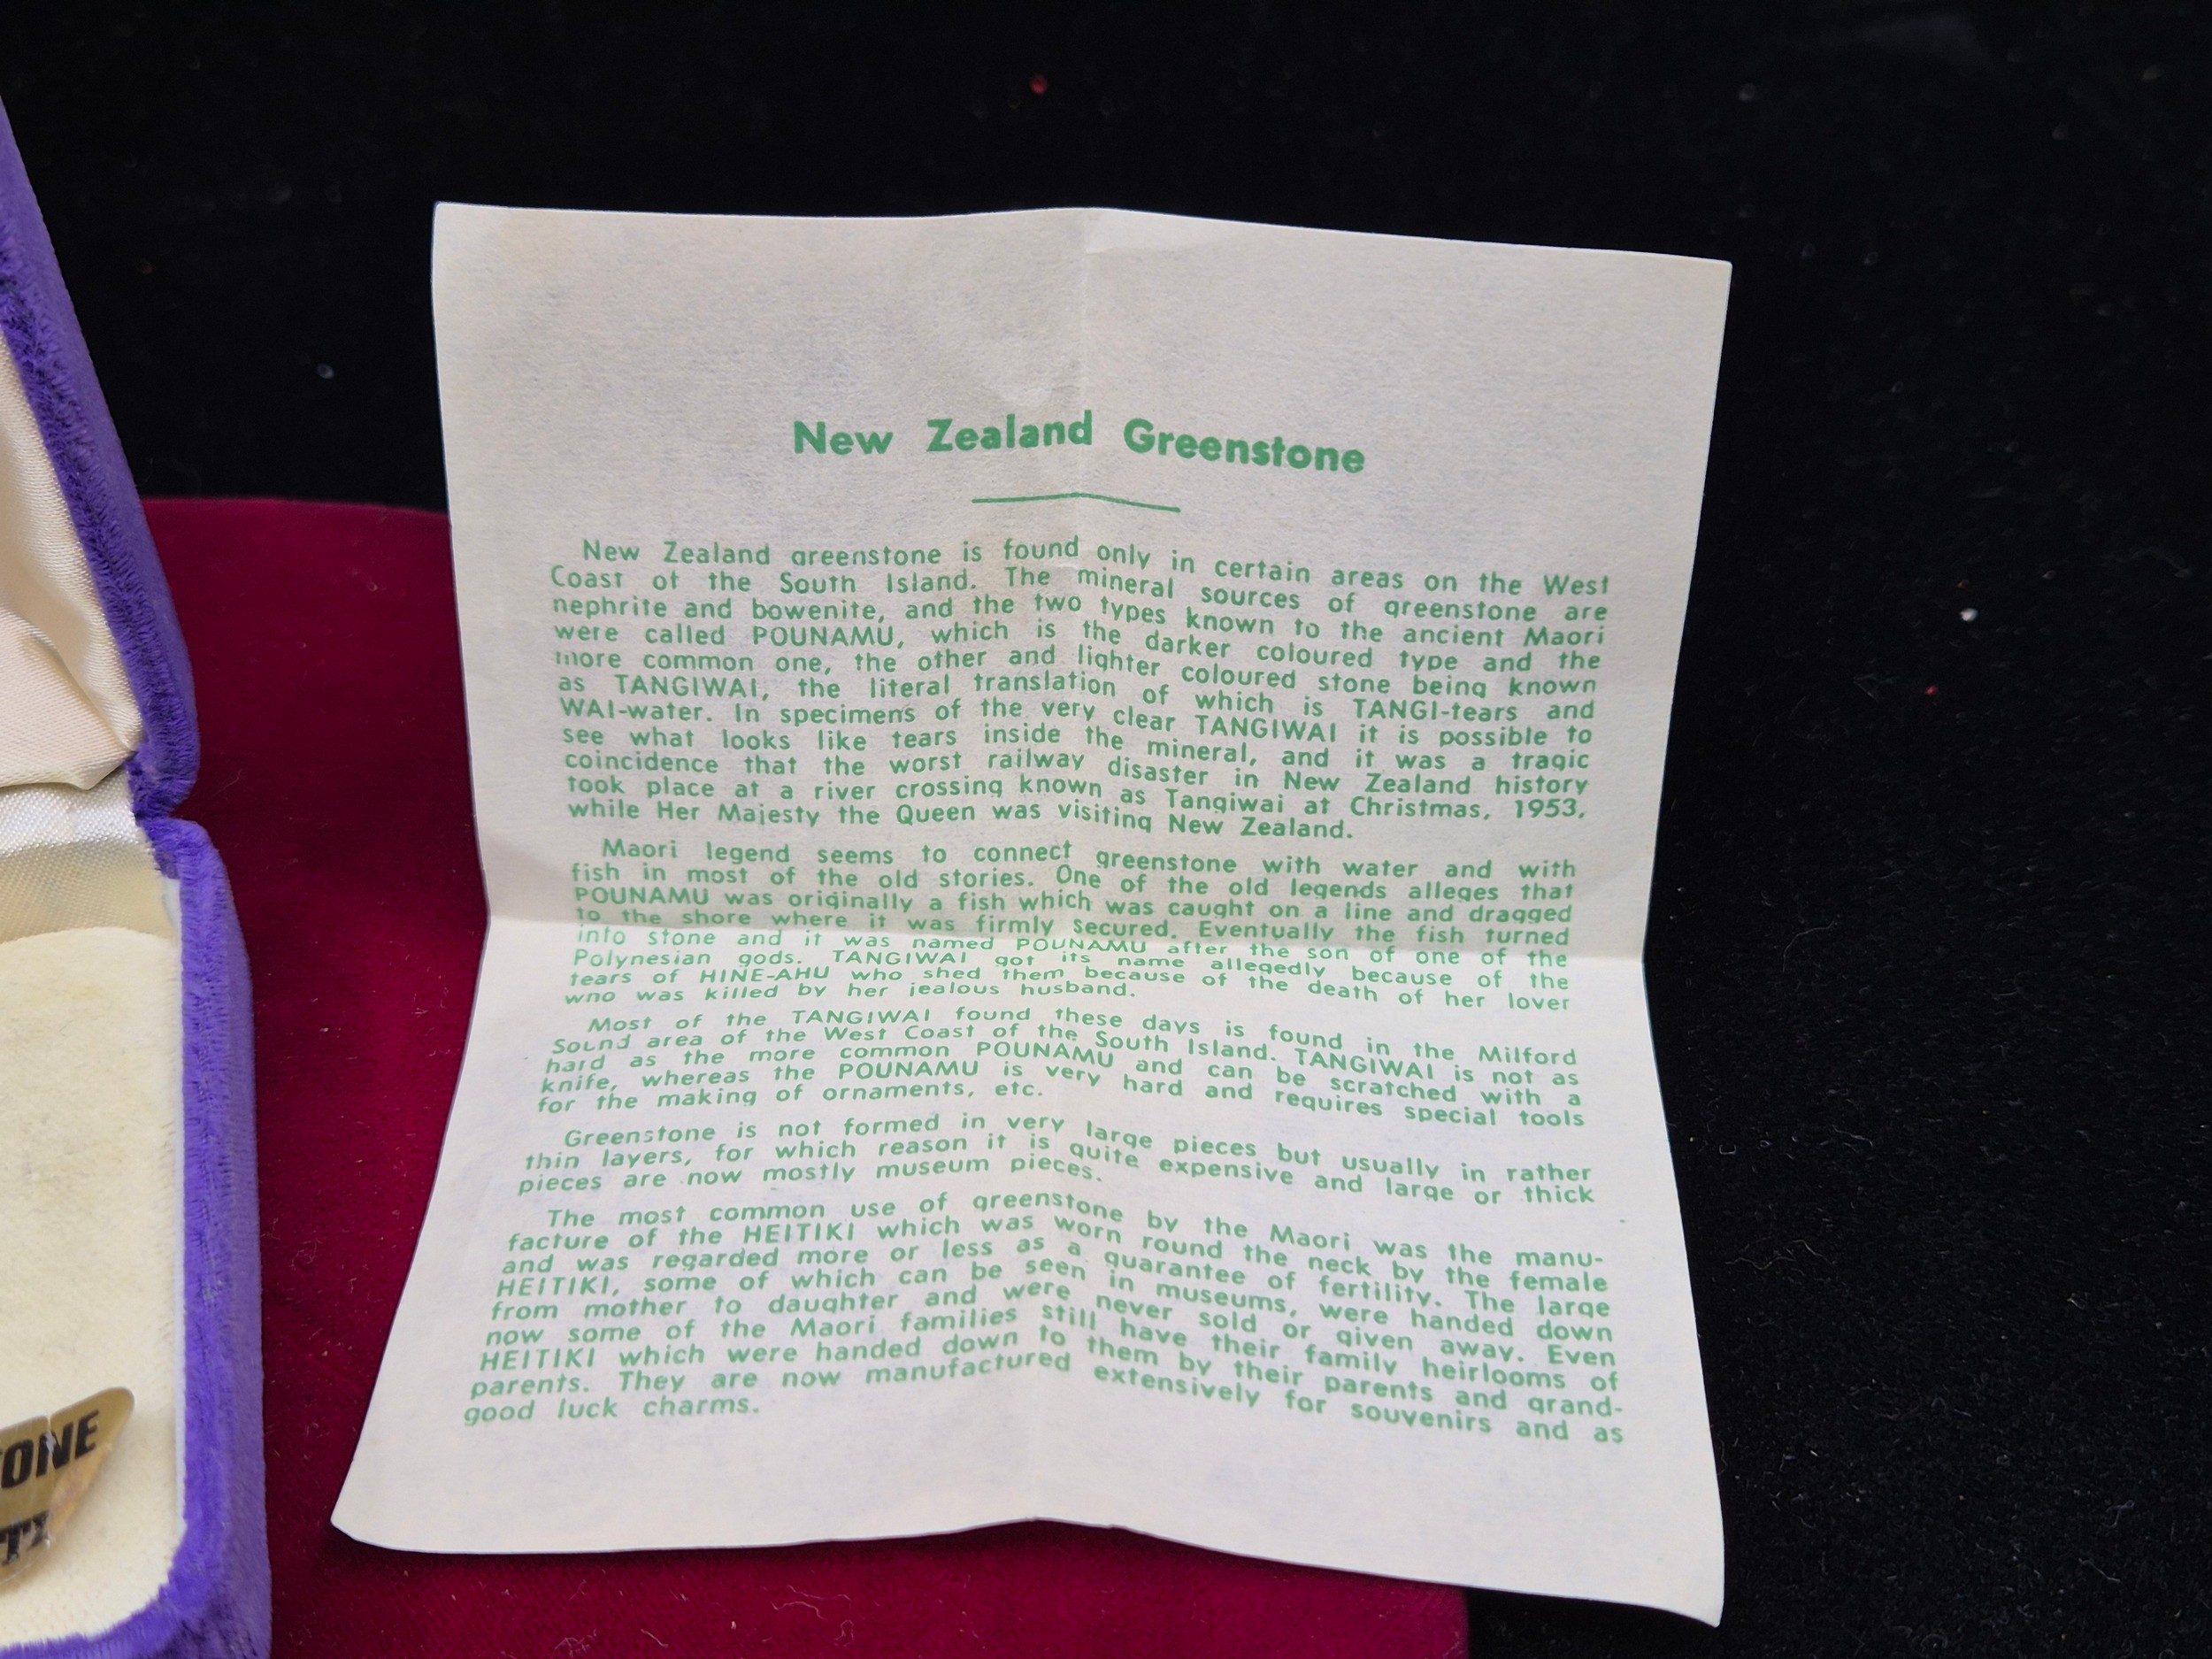 New Zealand Greenstone
New Zealand greenstone is found only in certain areas on the West
Coast of the South Island. The mineral sources of greenstone are
nephrite and bowenite, and the two types known to the ancient Maori
were called POUNAMU, which is the darker coloured type and the
more common one, the other and lighter coloured stone being known
as TANGIWAI, the literal translation of which is TANGI-tears and
WAI-water. In specimens of the very clear TANGIWAI it is possible to
see what looks like tears inside the mineral, and it was a tragic
coincidence that the worst railway disaster in New Zealand history
took place at a river crossing known as Tangiwai at Christmas, 1953,
while Her Majesty the Queen was visiting New Zealand.
Maori legend seems to connect greenstone with water and with
fish in most of the old stories. One of the old legends alleges that
POUNAMU was originally a fish which was caught on a line and dragged
to the shore where it was firmly secured. Eventually the fish turned
into stone and it was named POUNAMU after the son of one of the
Polynesian gods. TANGIWAI got its name allegedly because of the
tears of HINE-AHU who shed them because of the death of her lover
who was killed by her jealous husband.
Most of the TANGIWAI found these days is found in the Milford
Sound area of the West Coast of the South Island. TANGIWAI is not as
hard as the more common POUNAMU and can be scratched with a
knife, whereas the POUNAMU is very hard and requires special tools
for the making of ornaments, etc.
Greenstone is not formed in very large pieces but usually in rather
thin layers, for which reason it is quite expensive and large or thick
pieces are now mostly museum pieces.
The most common use of greenstone by the Maori was the manu-
facture of the HEITIKI which was worn round the neck by the female
and was regarded more or less as a guarantee of fertility. The large
HEITIKI, some of which can be seen in museums, were handed down
from mother to daughter and were never sold or given away. Even
now some of the Maori families still have their family heirlooms of
HEITIKI which were handed down to them by their parents and grand-
parents. They are now manufactured extensively for souvenirs and as
good luck charms.